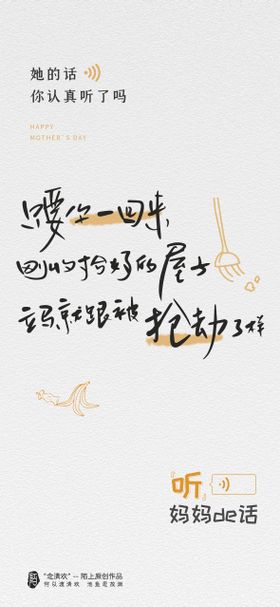 她的话
你认真听了吗
HAPPY
MOTHER'S DAY
只要你一回来
刚收拾好的屋子
立马就跟被抢劫了样
『听』
妈妈de话
“念清欢”— 陌上原创作品
何以渡清欢 池鱼是故渊